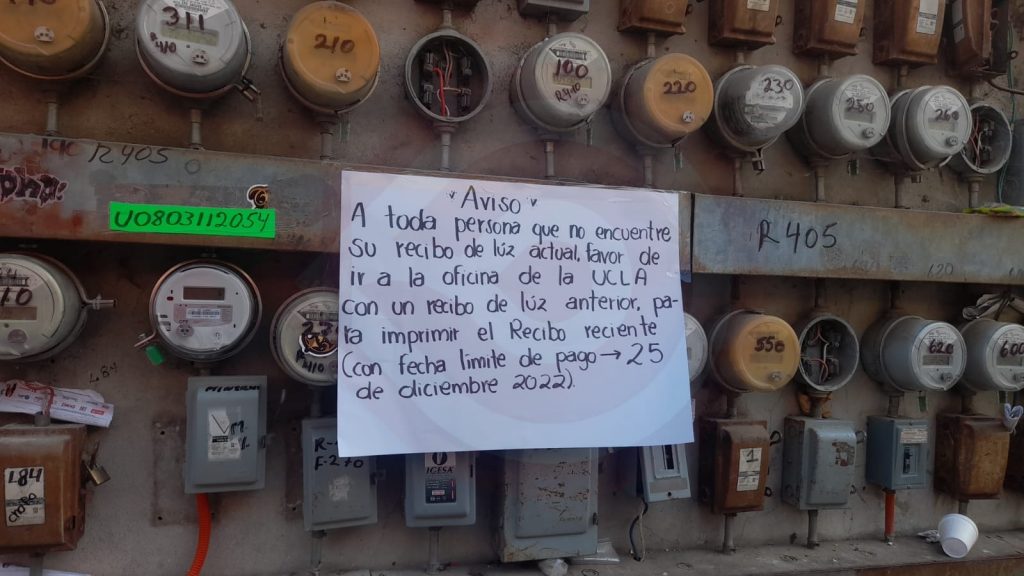 311
R410
210
100
R410
220
230
250
260
R405
U0803112054
R405
"Aviso"
A toda persona que no encuentre
su recibo de lúz actual, favor de
ir a la oficina de la UCLA
con un recibo de lúz anterior, pa-
ra imprimir el Recibo reciente
(con fecha límite de pago → 25
de diciembre 2022).
550
620
600
L84
R-
F-270
IGESA
1